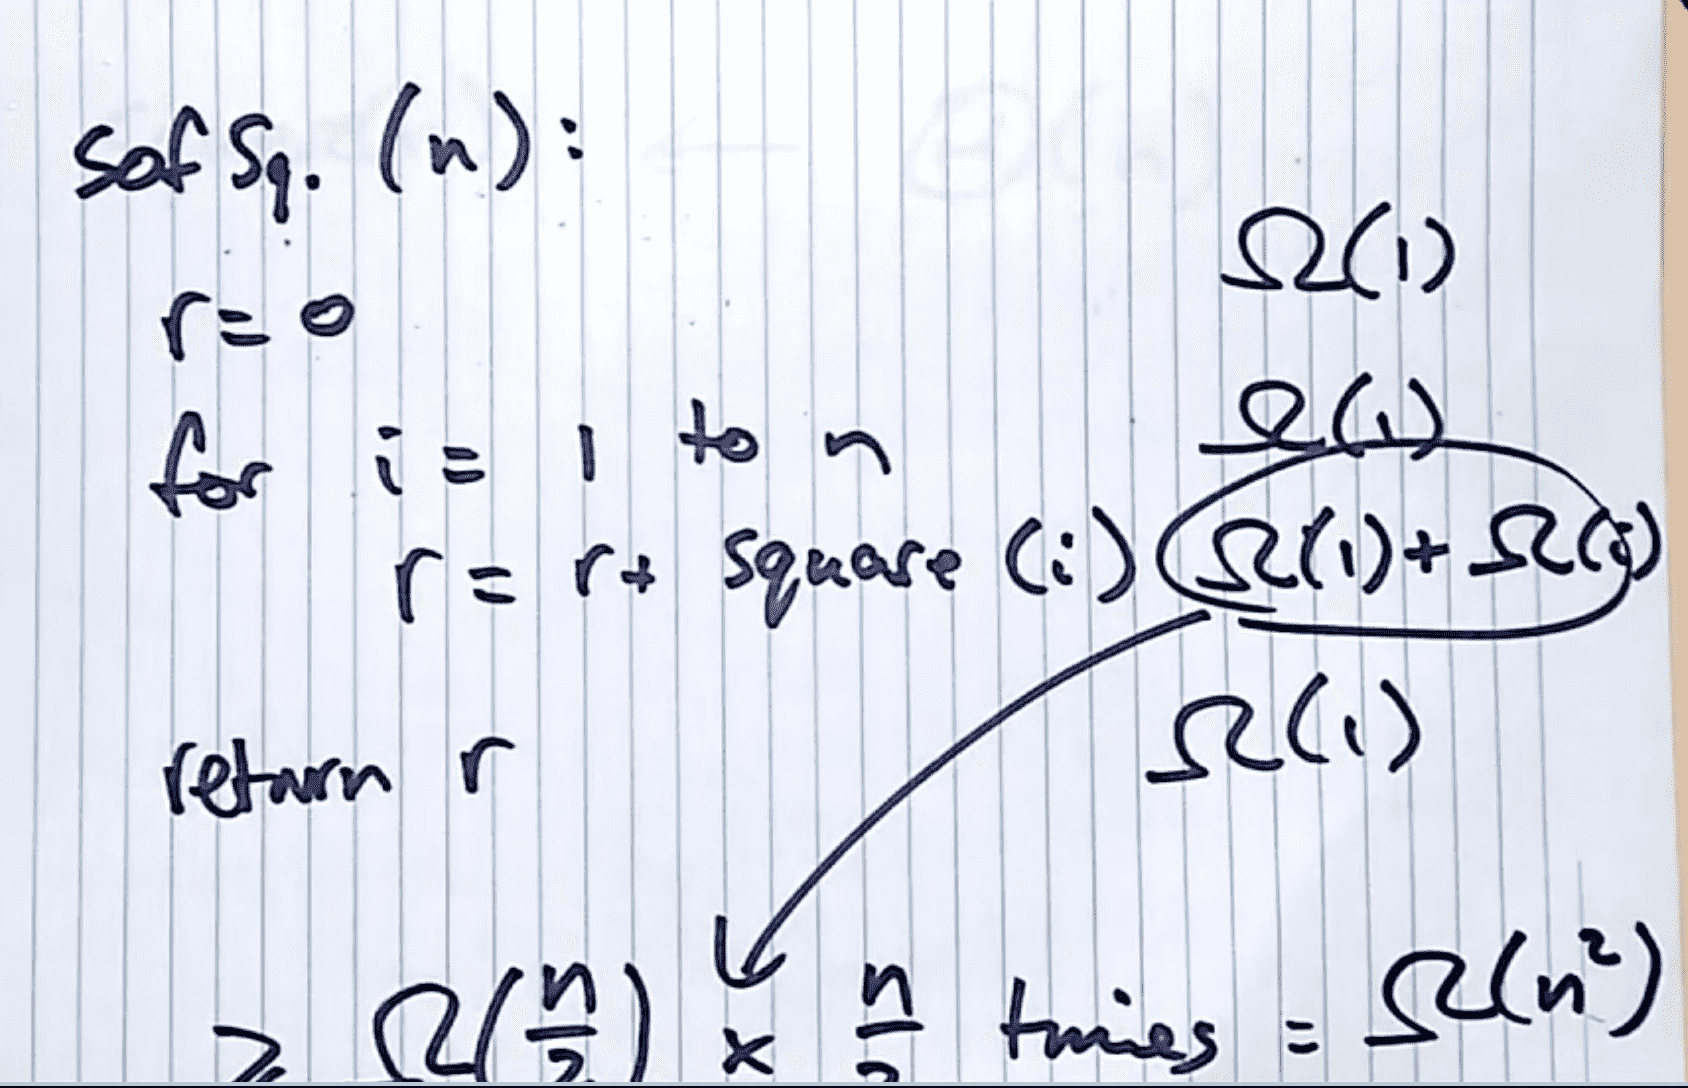 sofSq. (n):
Ω(1)
r = 0
Ω(1)
for i = 1 to n
r = r + square (i) Ω(1) + Ω(i)
Ω(1)
return r
≥ Ω(n/2) × n/2 times = Ω(n²)